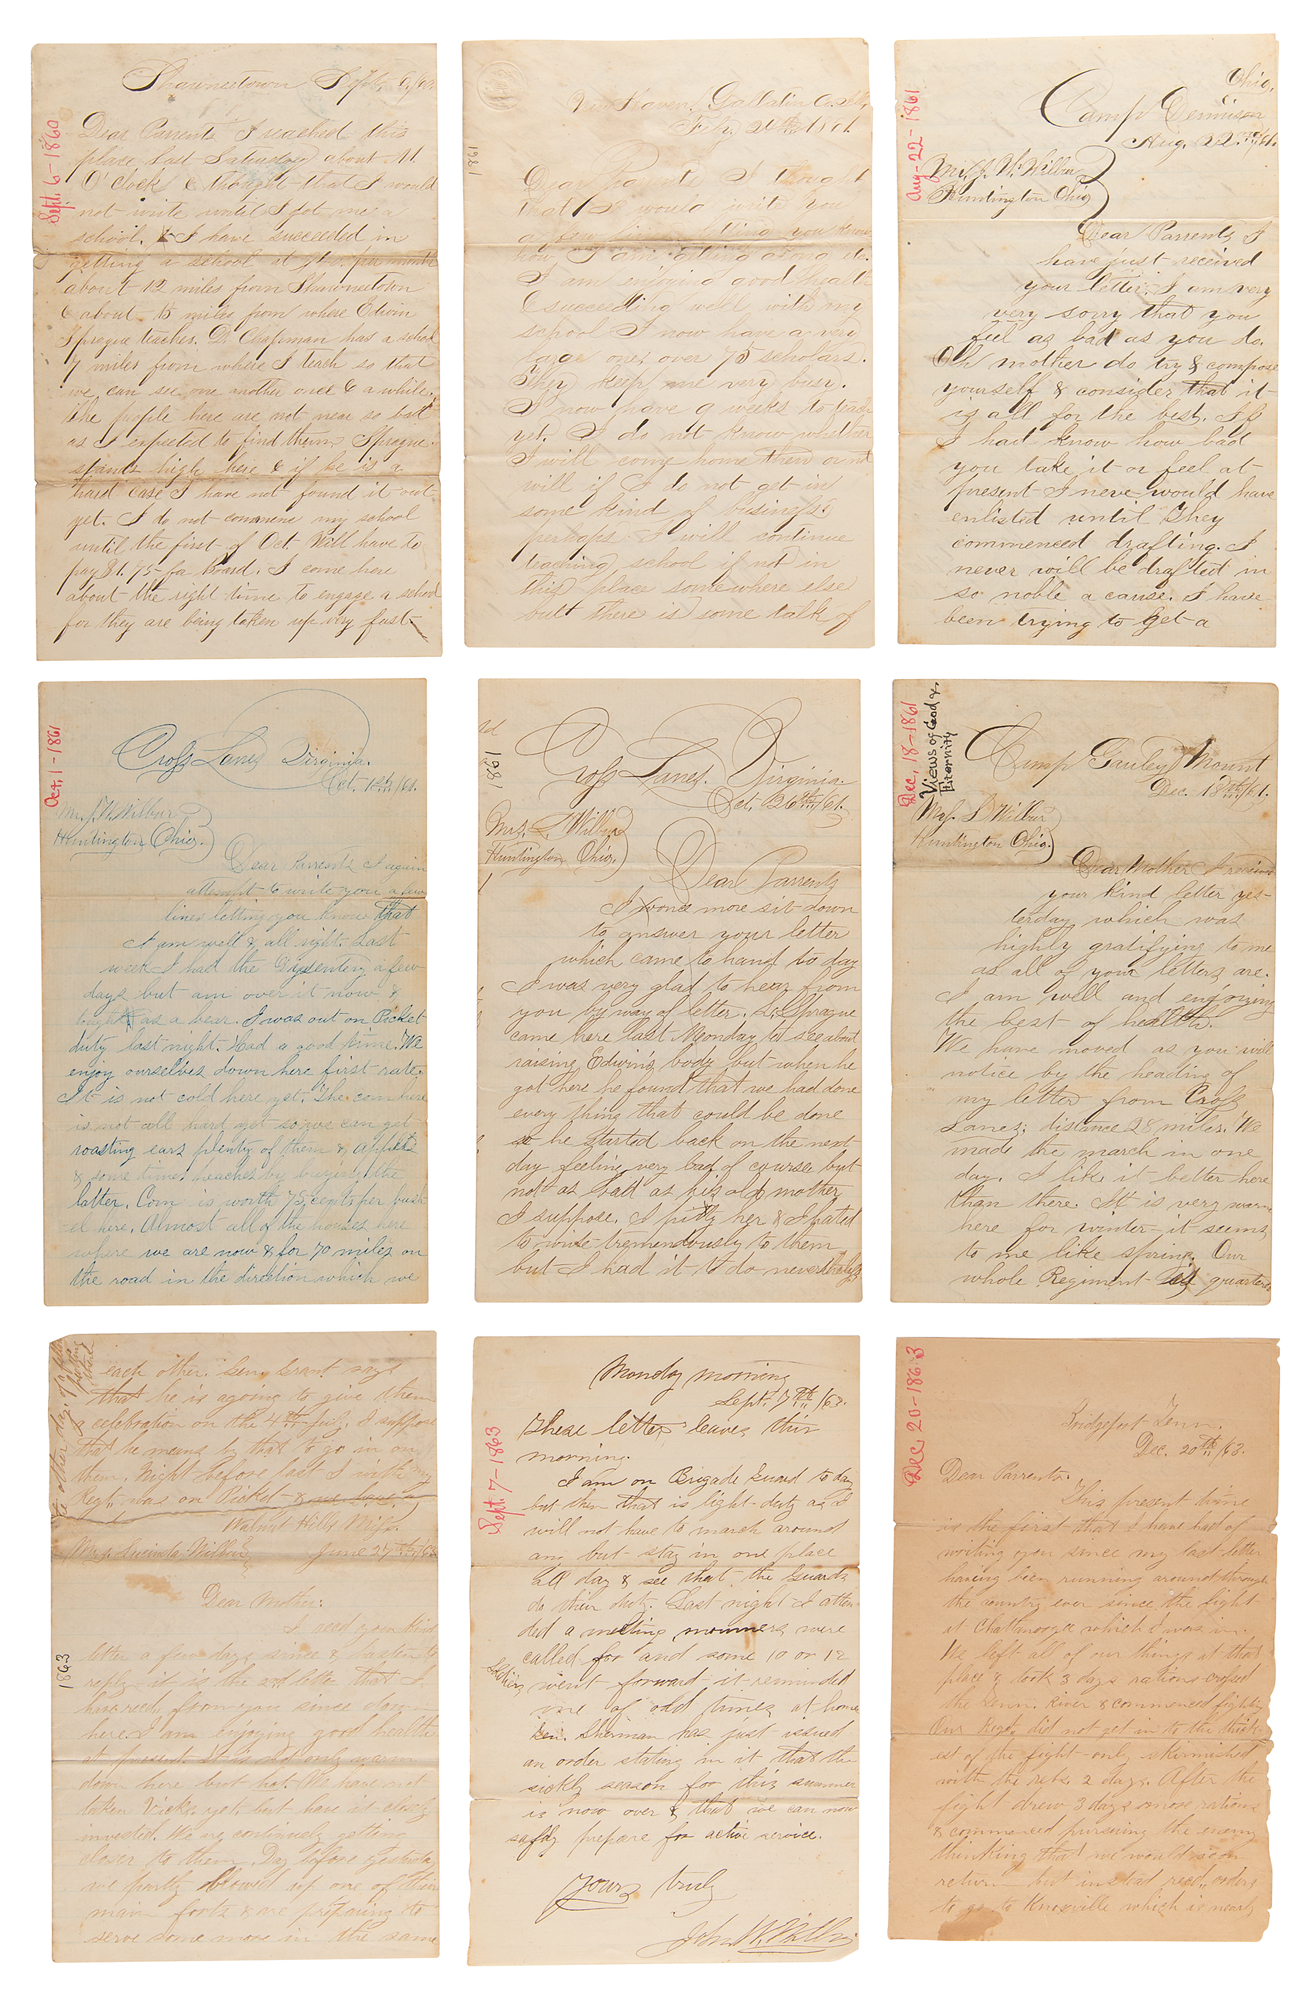 Sept. 6-1860
Shawneetown Sept. 6/60
Dear Parrents I reached this
place last Saturday about 11
O'Clock & thought that I would
not write until I got me a
school. & I have succeeded in
getting a school at per month
about 12 miles from Shawneetown
& about 15 miles from where Edwin
Sprague teaches. D. Chapman has a school
7 miles from where I teach so that
we can see one another once & a while.
The people here are not near so bad
as I expected to find them. Sprague
stands high here & if he is a
hard case I have not found it out
yet. I do not commence my school
until the first of Oct. Will have to
pay $1.75 for Board. I came here
about the right time to engage a school
for they are being taken up very fast
1861
New Haven, Gallatin Co. Ill,
Feb. 24th 1861.
Dear Parrents I thought
that I would write you
a few lines letting you know
how I am getting along &c.
I am enjoying good health
& succeeding well with my
school. I now have a very
large one; over 75 scholars.
They keep me very busy.
I now have 9 weeks to teach
yet. I do not know whether
I will come home then or not
will if I do not get in
some kind of business.
perhaps I will continue
teaching school if not in
this place somewhere else
but there is some talk of
Aug-22-1861
Ohio,
Camp Dennison
Aug. 22nd/61.
Mr. J. W. Wilbur
Huntington Ohio
Dear Parrents I
have just received
your letter. I am very
very sorry that you
feel as bad as you do.
Oh mother do try & compose
yourself & consider that it
is all for the best. If
I had know how bad
you take it or feel at
present I neve would have
enlisted until They
commenced drafting. I
never will be drafted in
so noble a cause. I have
been trying to get a
Oct. 1-1861
Cross Lanes Virginia.
Oct. 1st/61.
Mr. J. W. Wilbur
Huntington Ohio.
Dear Parrents I again
attempt to write you a few
lines letting you know that
I am well & all right. Last
week I had the Dysentery a few
days but am over it now &
tight as a bear. I was out on Picket
duty last night. Had a good time. We
enjoy ourselves down here first rate.
It is not cold here yet. The corn here
is not all hard yet so we can get
roasting ears plenty of them & apples
& some times peaches by buying the
latter. Corn is worth 75 cents per bush
el here. Almost all of the houses here
where we are now & for 70 miles on
the road in the direction which we
1861
Cross Lanes. Virginia.
Oct. 26th/61.
Mrs. L. Wilbur
Huntington Ohio.
Dear Parrents
I once more sit down
to answer your letter
which came to hand to day
I was very glad to hear from
you by way of letter. S. Sprague
came here last Monday to see about
raising Edwin's body but when he
got here he found that we had done
every thing that could be done
so he started back on the next
day feeling very bad of course but
not as bad as his old mother
I suppose. I pitty her & I hated
to write tremendously to them
but I had it to do nevertheless
Dec. 18-1861
Views of God &
Eternity
Camp Gauley Mount
Dec. 18th/61.
Mrs. L. Wilbur
Huntington Ohio.
Dear Mother I received
your kind letter yes-
terday, which was
highly gratifying to me
as all of your letters are.
I am well and enjoying
the best of health.
We have moved as you will
notice by the heading of
my letter from Cross
Lanes; distance 28 miles. We
made the march in one
day. I like it better here
than there. It is very warm
here for winter it seems
to me like spring. Our
whole Regiment is quartered
each other. Gen. Grant says
that he is agoing to give them
a celebration on the 4th July. I suppose
that he means by that to go in on
them. Night before last I with my
Regt. was on Picket
Walnut Hills Miss.
Mrs. Lucinda Wilbur June 27th/63
Dear Mother:
I recd your kind
letter a few days since & hasten to
reply it is the 2nd letter that I
have recd. from you since down
here. I am enjoying good health
at present. It is not only warm
down here but hot. We have not
taken Vicks. yet, but have it closely
invested. We are continualy getting
closer to them. Day before yesterday
we partly blowed up one of their
main forts & are preparing to
serve some more in the same
1863
Sept. 7-1863
Monday morning
Sept. 7th/63.
These letter leaves this
morning.
I am on Brigade Guard to day
but then that is light duty as I
will not have to march around
any but stay in one place
all day & see that the Guards
do their duty. Last night I atten-
ded a meeting, mourners were
called for and some 10 or 12
soldiers went forward it reminded
me of old times at home
Gen. Sherman has just issued
an order stating in it that the
sickly season for this summer
is now over & that we can now
safely prepare for active service.
Yours truly
John W. Wilbur
Dec. 20-1863
Bridgeport Tenn.
Dec. 20th/63.
Dear Parrents:
This present time
is the first that I have had of
writing you since my last letter
having been running around through
the country ever since the fight
at Chattanooga which I was in.
We left all of our things at that
place & took 3 days rations crossed
the Tenn. River & commenced fighting
Our Regt. did not get in to the thick-
est of the fight only skirmished
with the rebs. 2 days. After the
fight drew 3 days more rations
& commenced pursuing the enemy
thinking that we would soon
return but instead recd. orders
to go to Knoxville which is nearly